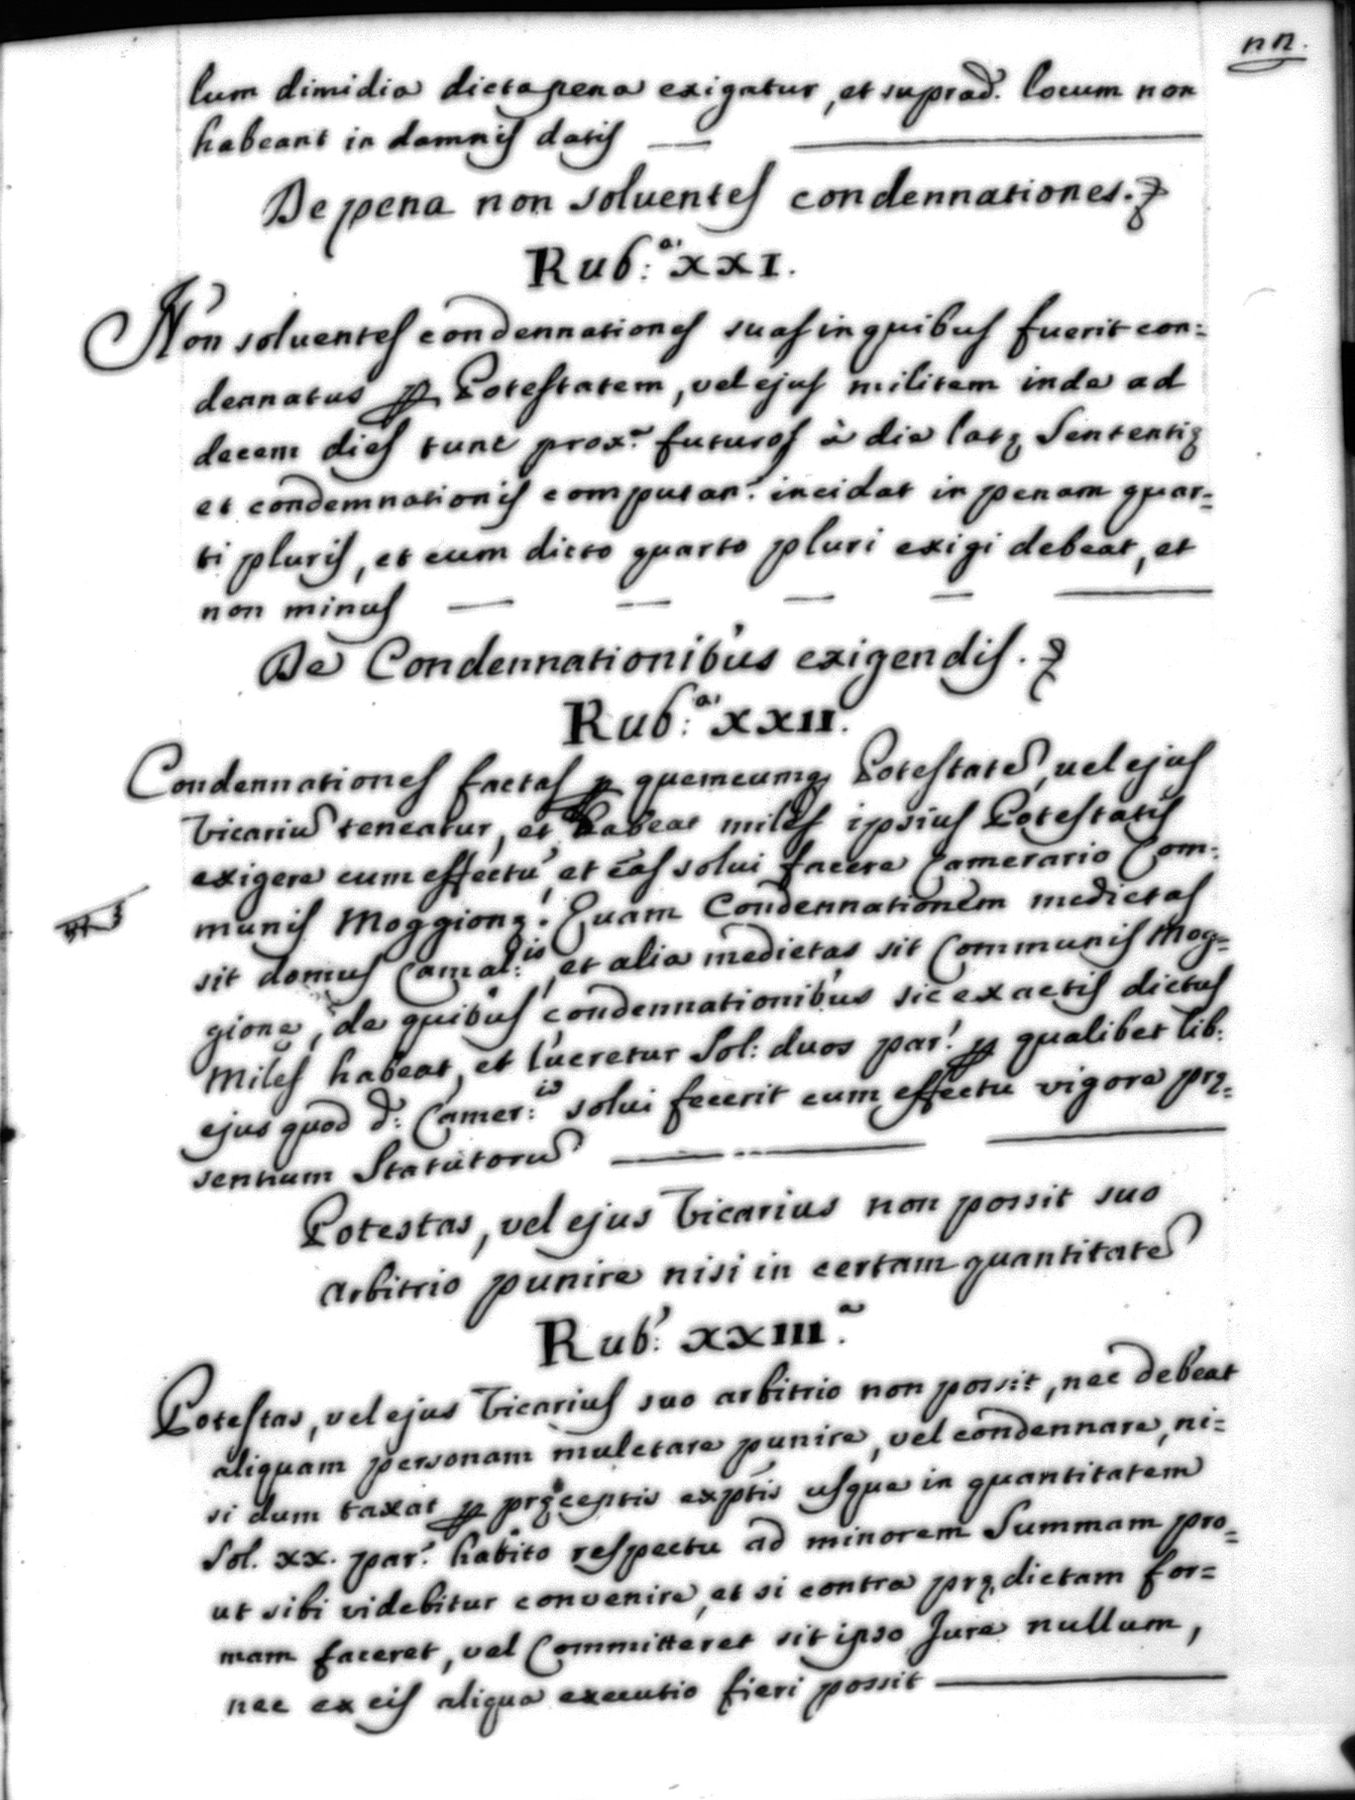 nn.
lum dimidia dicta pena exigatur, et suprad. locum non
habeant in damnis datis
De pena non soluentes condennationes.
Rub:a XXI.
Non soluentes condennationes suas in quibus fuerit con=
dennatus p Potestatem, vel ejus militem inde ad
decem dies tunc prox.e futuros à die latę Sententię
et condemnationis computan. incidat in penam quar=
ti pluris, et cum dicto quarto pluri exigi debeat, et
non minus
De Condennationibus exigendis.
Rub:a XXII.
Condennationes factas p quemcumq Potestatē, vel ejus
Vicariū teneatur, et habeat miles ipsius Potestatis
exigere cum effectu, et eas solui facere Camerario Com=
munis Moggionę. Quam Condennationem medietas
sit domus Camal:is, et alia medietas sit Communis Mog=
gionę, de quibus condennationibus sic exactis dictus
Miles habeat, et lucretur Sol: duos par. p qualibet lib:
ejus quod d: Camer:io solui fecerit cum effectu vigore prę=
sentium Statutorū
Potestas, vel ejus Vicarius non possit suo
arbitrio punire nisi in certam quantitatē
Rub: XXIII.a
Potestas, vel ejus Vicarius suo arbitrio non possit, nec debeat
aliquam personam muletare punire, vel condennare, ni=
si dum taxat p pręceptis exptis usque in quantitatem
Sol. XX. par. habito respectu ad minorem Summam pro=
ut sibi videbitur convenire, et si contra prędictam for=
mam faceret, vel Committeret sit ipso Jure nullum,
nec ex eis aliqua executio fieri possit